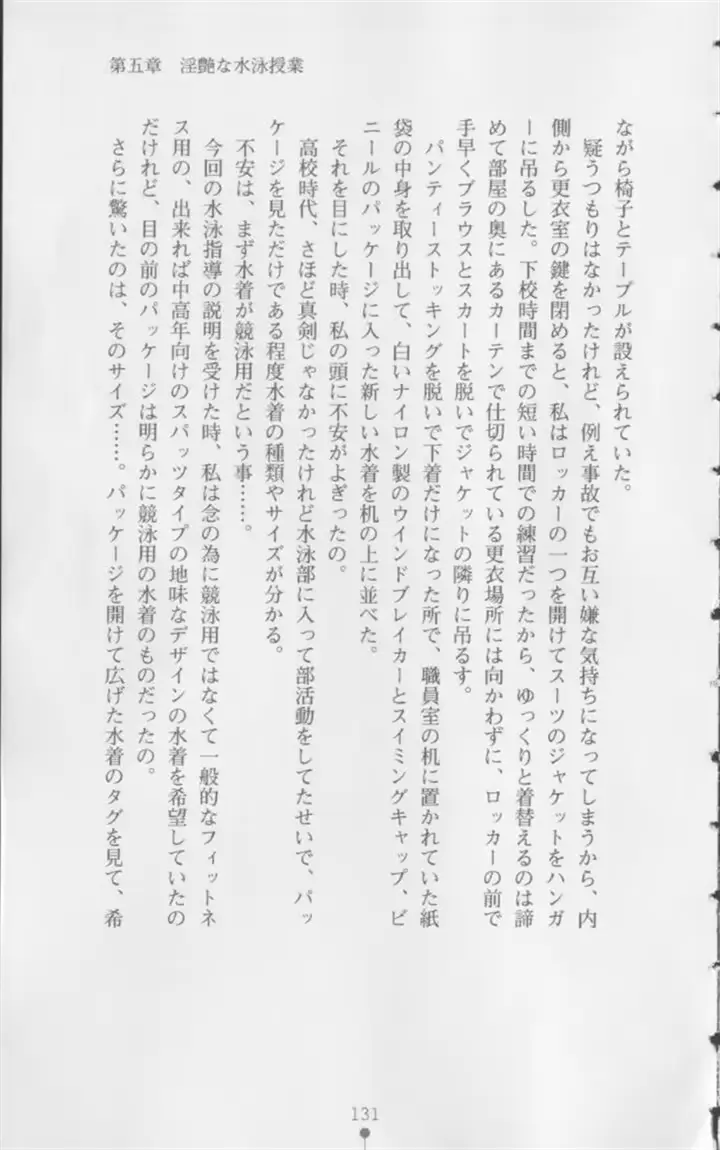 第五章　淫艶な水泳授業
ながら椅子とテーブルが設えられていた。
　疑うつもりはなかったけれど、例え事故でもお互い嫌な気持ちになってしまうから、内
側から更衣室の鍵を閉めると、私はロッカーの一つを開けてスーツのジャケットをハンガ
ーに吊るした。下校時間までの短い時間での練習だったから、ゆっくりと着替えるのは諦
めて部屋の奥にあるカーテンで仕切られている更衣場所には向かわずに、ロッカーの前で
手早くブラウスとスカートを脱いでジャケットの隣りに吊るす。
　パンティーストッキングを脱いで下着だけになった所で、職員室の机に置かれていた紙
袋の中身を取り出して、白いナイロン製のウインドブレイカーとスイミングキャップ、ビ
ニールのパッケージに入った新しい水着を机の上に並べた。
　それを目にした時、私の頭に不安がよぎったの。
　高校時代、さほど真剣じゃなかったけれど水泳部に入って部活動をしてたせいで、パッ
ケージを見ただけである程度水着の種類やサイズが分かる。
　不安は、まず水着が競泳用だという事……。
　今回の水泳指導の説明を受けた時、私は念の為に競泳用ではなくて一般的なフィットネ
ス用の、出来れば中高年向けのスパッツタイプの地味なデザインの水着を希望していたの
だけれど、目の前のパッケージは明らかに競泳用の水着のものだったの。
　さらに驚いたのは、そのサイズ……。パッケージを開けて広げた水着のタグを見て、希
131